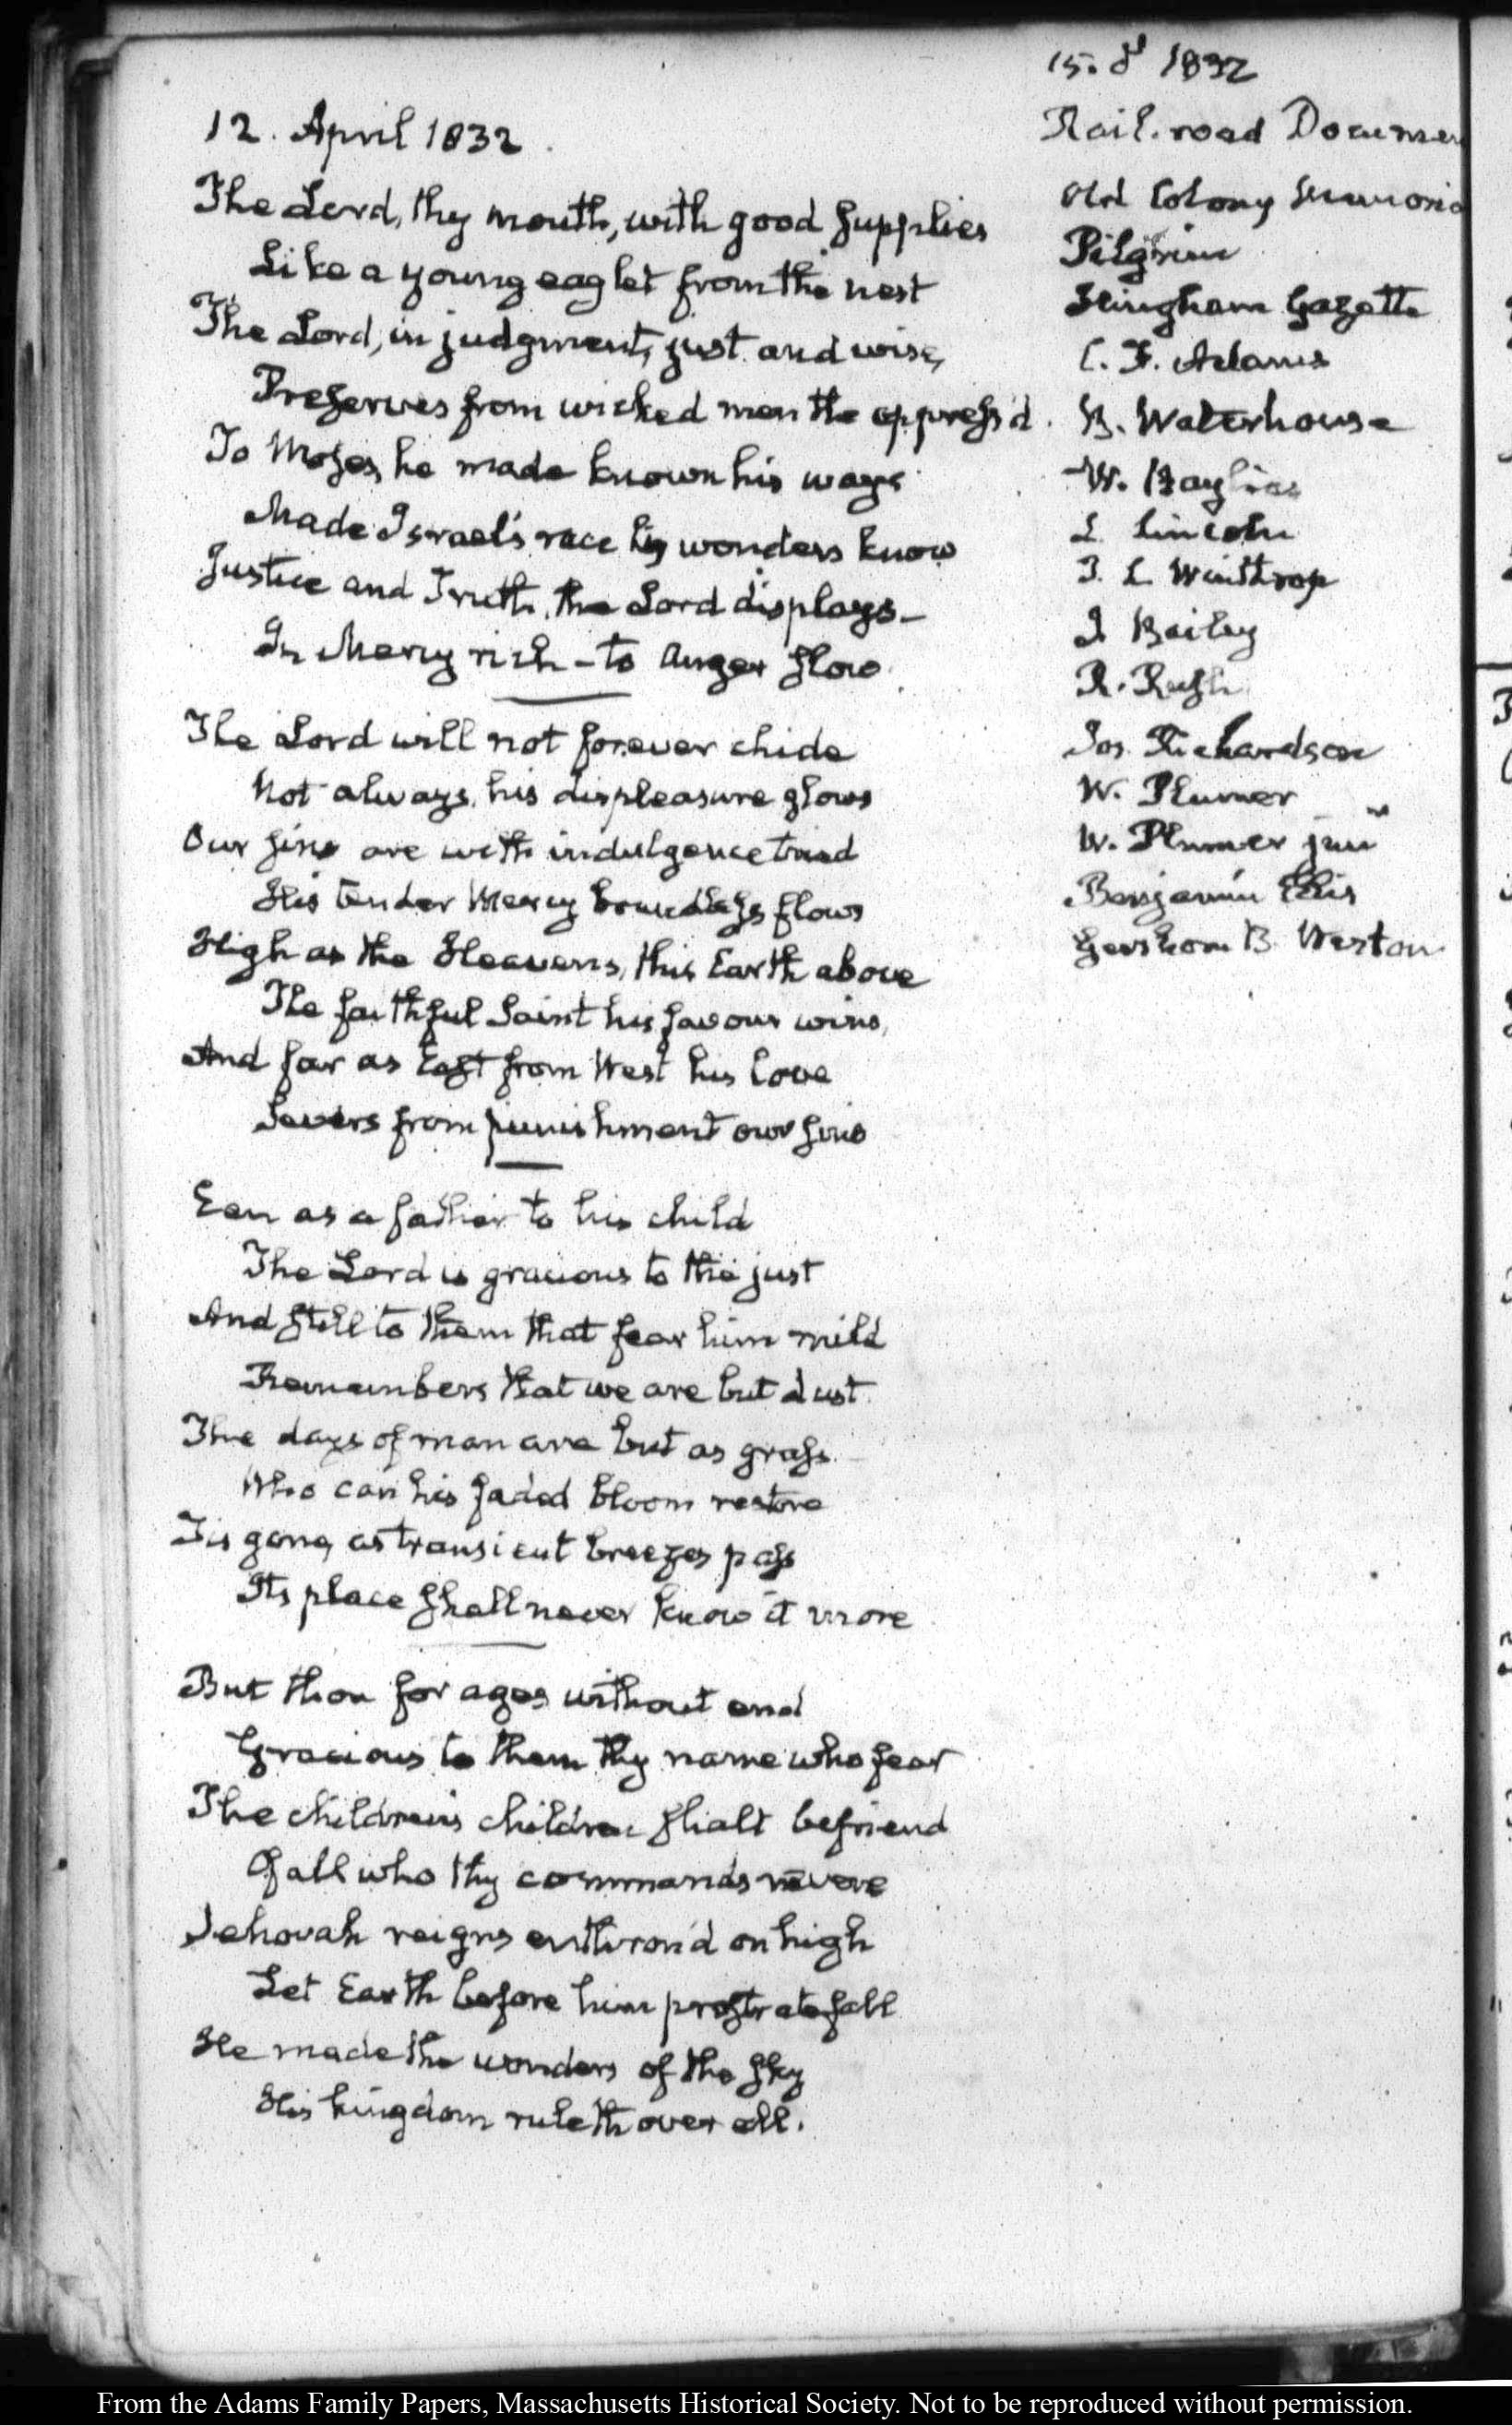 12. April 1832.
The Lord, thy mouth, with good supplies
Like a young eaglet from the nest
The Lord, in judgment, just and wise,
Preserves from wicked men the oppress'd.
To Moses he made known his ways
Made Israel's race his wonders know
Justice and Truth, the Lord displays—
In Mercy rich—to anger slow.
The Lord will not forever chide
Not always his displeasure glows
Our sins are with indulgence tried
His tender Mercy boundless flows
High as the Heavens, this Earth above
The faithful Saint his favour wins,
And far as East from West his love
Severs from punishment our sins
Een as a father to his child
The Lord is gracious to the just
And still to them that fear him mild
Remembers that we are but dust.
The days of man are but as grass.
Who can his faded bloom restore
Tis gone, as transient breezes pass
Its place shall never know it more
But thou for ages without end
Gracious to them thy name who fear
The children's children shalt befriend
Of all who thy commands revere
Jehovah reigns enthron'd on high
Let Earth before him prostrate fall
He made the wonders of the sky
His kingdom ruleth over all.
15. 1832
Rail-road Documen
Old Colony Memoria
Pilgrim
Hingham Gazette
C. F. Adams
B. Waterhouse
W. Baylies
L Lincoln
T. L Winthrop
J Bailey
R. Rush
Jos. Richardson
W. Plumer
W. Plumer junr
Benjamin Ellis
Gershom B. Weston
From the Adams Family Papers, Massachusetts Historical Society. Not to be reproduced without permission.